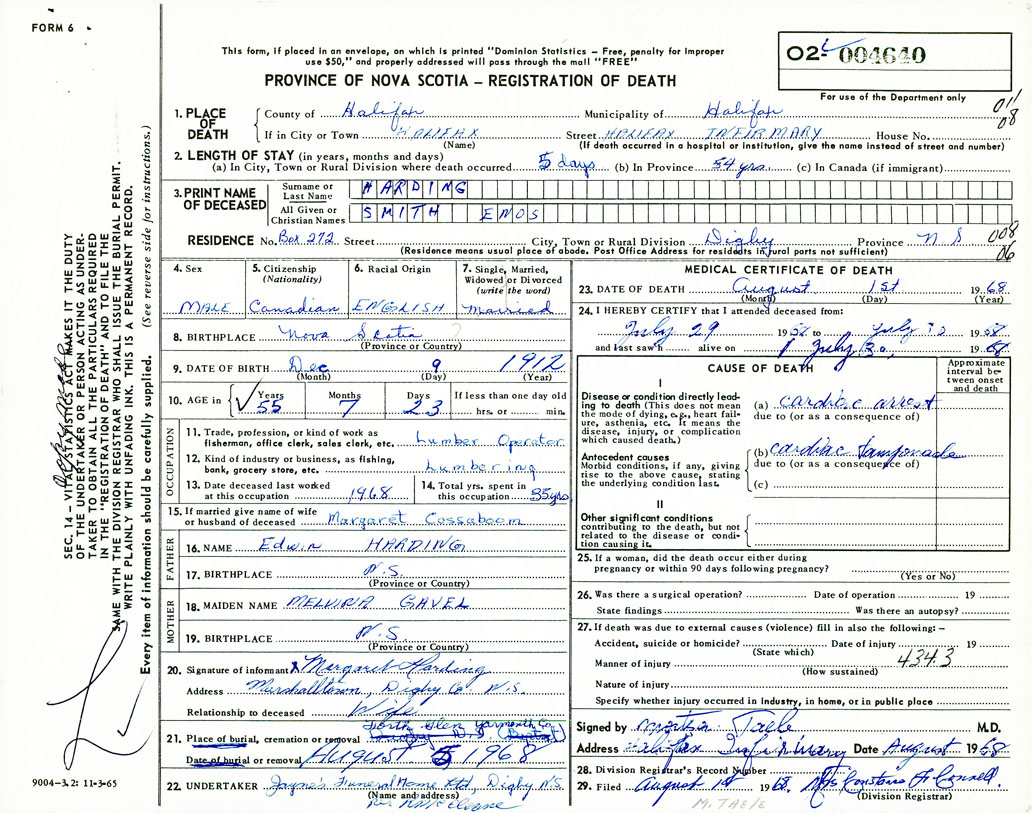 FORM 6
This form, if placed in an envelope, on which is printed "Dominion Statistics – Free, penalty for improper
use $50," and properly addressed will pass through the mail "FREE"
PROVINCE OF NOVA SCOTIA – REGISTRATION OF DEATH
02- 004640
For use of the Department only
011
08
1. PLACE OF DEATH
County of Halifax Municipality of Halifax
If in City or Town HALIFAX Street HALIFAX INFIRMARY House No.
(Name) (If death occurred in a hospital or institution, give the name instead of street and number)
2. LENGTH OF STAY (in years, months and days)
(a) In City, Town or Rural Division where death occurred 5 days (b) In Province 54 yrs. (c) In Canada (if immigrant)
3. PRINT NAME OF DECEASED
Surname or Last Name HARDING
All Given or Christian Names SMITH ENOS
RESIDENCE No. Box 272 Street City, Town or Rural Division Digby Province N S
(Residence means usual place of abode. Post Office Address for residents in rural parts not sufficient)
008
06
4. Sex 5. Citizenship (Nationality) 6. Racial Origin 7. Single, Married, Widowed or Divorced (write the word)
MALE Canadian ENGLISH Married
8. BIRTHPLACE Nova Scotia ?
(Province or Country)
9. DATE OF BIRTH Dec 9 1912
(Month) (Day) (Year)
10. AGE in Years Months Days If less than one day old
✓ 55 7 23 hrs. or min.
OCCUPATION
11. Trade, profession, or kind of work as
fisherman, office clerk, sales clerk, etc. Lumber Operator
12. Kind of industry or business, as fishing,
bank, grocery store, etc. Lumbering
13. Date deceased last worked
at this occupation 1968
14. Total yrs. spent in
this occupation 35yrs
15. If married give name of wife
or husband of deceased Margaret Cossaboom
FATHER
16. NAME Edwin HARDING
17. BIRTHPLACE N.S.
(Province or Country)
MOTHER
18. MAIDEN NAME MELVINA GAVEL
19. BIRTHPLACE N.S.
(Province or Country)
20. Signature of informant X Margaret Harding
Address Marshalltown, Digby Co. N.S.
Relationship to deceased Wife
North Glen Yarmouth Co.
21. Place of burial, cremation or removal
Date of burial or removal AUGUST 5 1968
22. UNDERTAKER Jayne's Funeral Home Ltd, Digby N.S.
(Name and address)
MEDICAL CERTIFICATE OF DEATH
23. DATE OF DEATH August 1st 1968
(Month) (Day) (Year)
24. I HEREBY CERTIFY that I attended deceased from:
July 29 1968 to July 30 1968
and last saw h alive on July 30, 1968
CAUSE OF DEATH
Approximate interval between onset and death
I
Disease or condition directly leading
to death (This does not mean
the mode of dying, e.g., heart failure,
asthenia, etc. It means the
disease, injury, or complication
which caused death.)
(a) cardiac arrest
due to (or as a consequence of)
Antecedent causes
Morbid conditions, if any, giving
rise to the above cause, stating
the underlying condition last.
(b) cardiac tamponade
due to (or as a consequence of)
(c)
II
Other significant conditions
contributing to the death, but not
related to the disease or condition
causing it.
25. If a woman, did the death occur either during
pregnancy or within 90 days following pregnancy?
(Yes or No)
26. Was there a surgical operation? Date of operation 19
State findings Was there an autopsy?
27. If death was due to external causes (violence) fill in also the following: –
Accident, suicide or homicide? Date of injury 19
(State which)
Manner of injury 4343
(How sustained)
Nature of injury
Specify whether injury occurred in Industry, in home, or in public place
Signed by M.D.
Address Halifax Infirmary Date August 1968
28. Division Registrar's Record Number
29. Filed August 1st 1968. Mrs Constance F Connell.
(Division Registrar)
M. TAELE
SEC. 14 – VITAL STATISTICS ACT MAKES IT THE DUTY
OF THE UNDERTAKER OR PERSON ACTING AS UNDER-
TAKER TO OBTAIN ALL THE PARTICULARS REQUIRED
IN THE "REGISTRATION OF DEATH" AND TO FILE THE
SAME WITH THE DIVISION REGISTRAR WHO SHALL ISSUE THE BURIAL PERMIT.
WRITE PLAINLY WITH UNFADING INK. THIS IS A PERMANENT RECORD.
Every item of information should be carefully supplied. (See reverse side for instructions.)
9004–3.2: 11-3-65